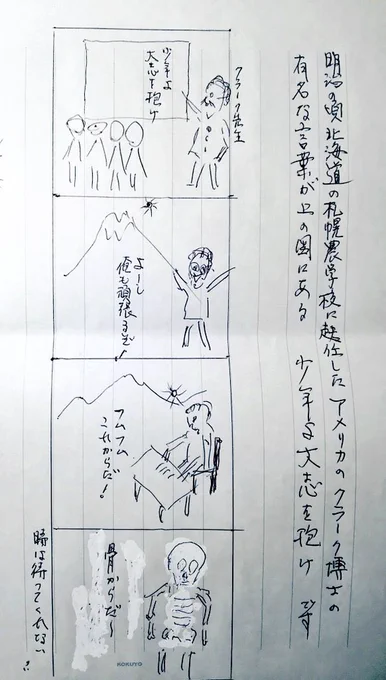 明治の頃北海道の札幌農学校に赴任したアメリカのクラーク博士の
有名な言葉が上の図にある　少年よ大志を抱け　です
クラーク先生
少年よ
大志を抱け
よーし
俺も頑張るぞ!
フムフム
これからだ!
骨からだ〜
時は待ってくれない!!
KOKUYO